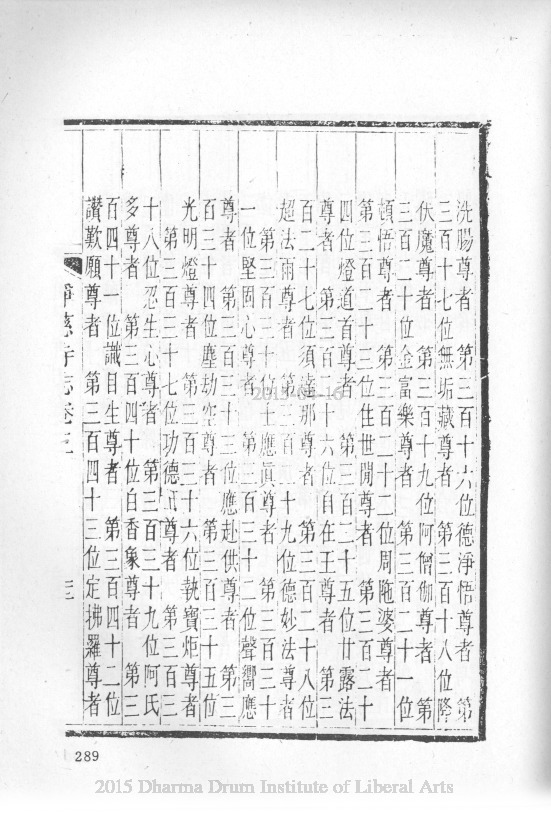 洗腸尊者　第三百十六位德淨悟尊者　第
三百十七位無垢藏尊者　第三百十八位降
伏魔尊者　第三百十九位阿僧伽尊者　第
三百二十位金富樂尊者　第三百二十一位
頓悟尊者　第三百二十二位周陁婆尊者
第三百二十三位住世閒尊者　第三百二十
四位燈道首尊者　第三百二十五位甘露法
尊者　第三百二十六位自在王尊者　第三
百二十七位須達那尊者　第三百二十八位
超法雨尊者　第三百二十九位德妙法尊者
第三百三十位士應眞尊者　第三百三十
一位堅固心尊者　第三百三十二位聲嚮應
尊者　第三百三十三位應赴供尊者　第三
百三十四位塵劫空尊者　第三百三十五位
光明燈尊者　第三百三十六位執寶炬尊者
第三百三十七位功德尊者　第三百三
十八位忍生心尊者　第三百三十九位阿氏
多尊者　第三百四十位白香象尊者　第三
百四十一位識自生尊者　第三百四十二位
讚歎願尊者　第三百四十三位定拂羅尊者
淨慈寺志卷
289
2015-04-16
2015 Dharma Drum Institute of Liberal Arts